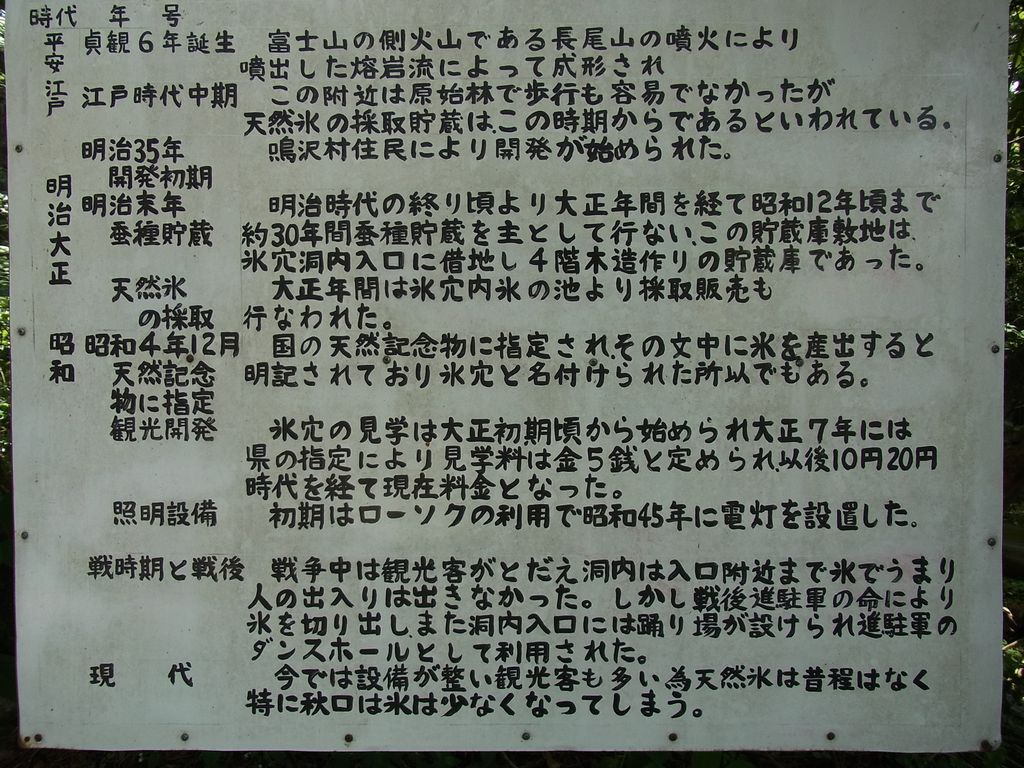 時代 年 号
平安 貞観6年誕生 富士山の側火山である長尾山の噴火により
噴出した熔岩流によって成形され
江戸 江戸時代中期 この附近は原始林で歩行も容易でなかったが
天然氷の採取貯蔵は、この時期からであるといわれている。
明治大正 明治35年 鳴沢村住民により開発が始められた。
開発初期
明治末年 明治時代の終り頃より大正年間を経て昭和12年頃まで
蚕種貯蔵 約30年間蚕種貯蔵を主として行ない、この貯蔵庫敷地は、
氷穴洞内入口に借地し4階木造作りの貯蔵庫であった。
天然氷 大正年間は氷穴内氷の池より採取販売も
の採取 行なわれた。
昭和 昭和4年12月 国の天然記念物に指定され、その文中に氷を産出すると
天然記念 明記されており氷穴と名付けられた所以でもある。
物に指定
観光開発 氷穴の見学は大正初期頃から始められ大正7年には
県の指定により見学料は金5銭と定められ、以後10円20円
時代を経て現在料金となった。
照明設備 初期はローソクの利用で昭和45年に電灯を設置した。
戦時期と戦後 戦争中は観光客がとだえ洞内は入口附近まで氷でうまり
人の出入りは出きなかった。しかし戦後進駐軍の命により
氷を切り出し、また洞内入口には踊り場が設けられ進駐軍の
ダンスホールとして利用された。
現 代 今では設備が整い観光客も多い為天然氷は昔程はなく
特に秋口は氷は少なくなってしまう。